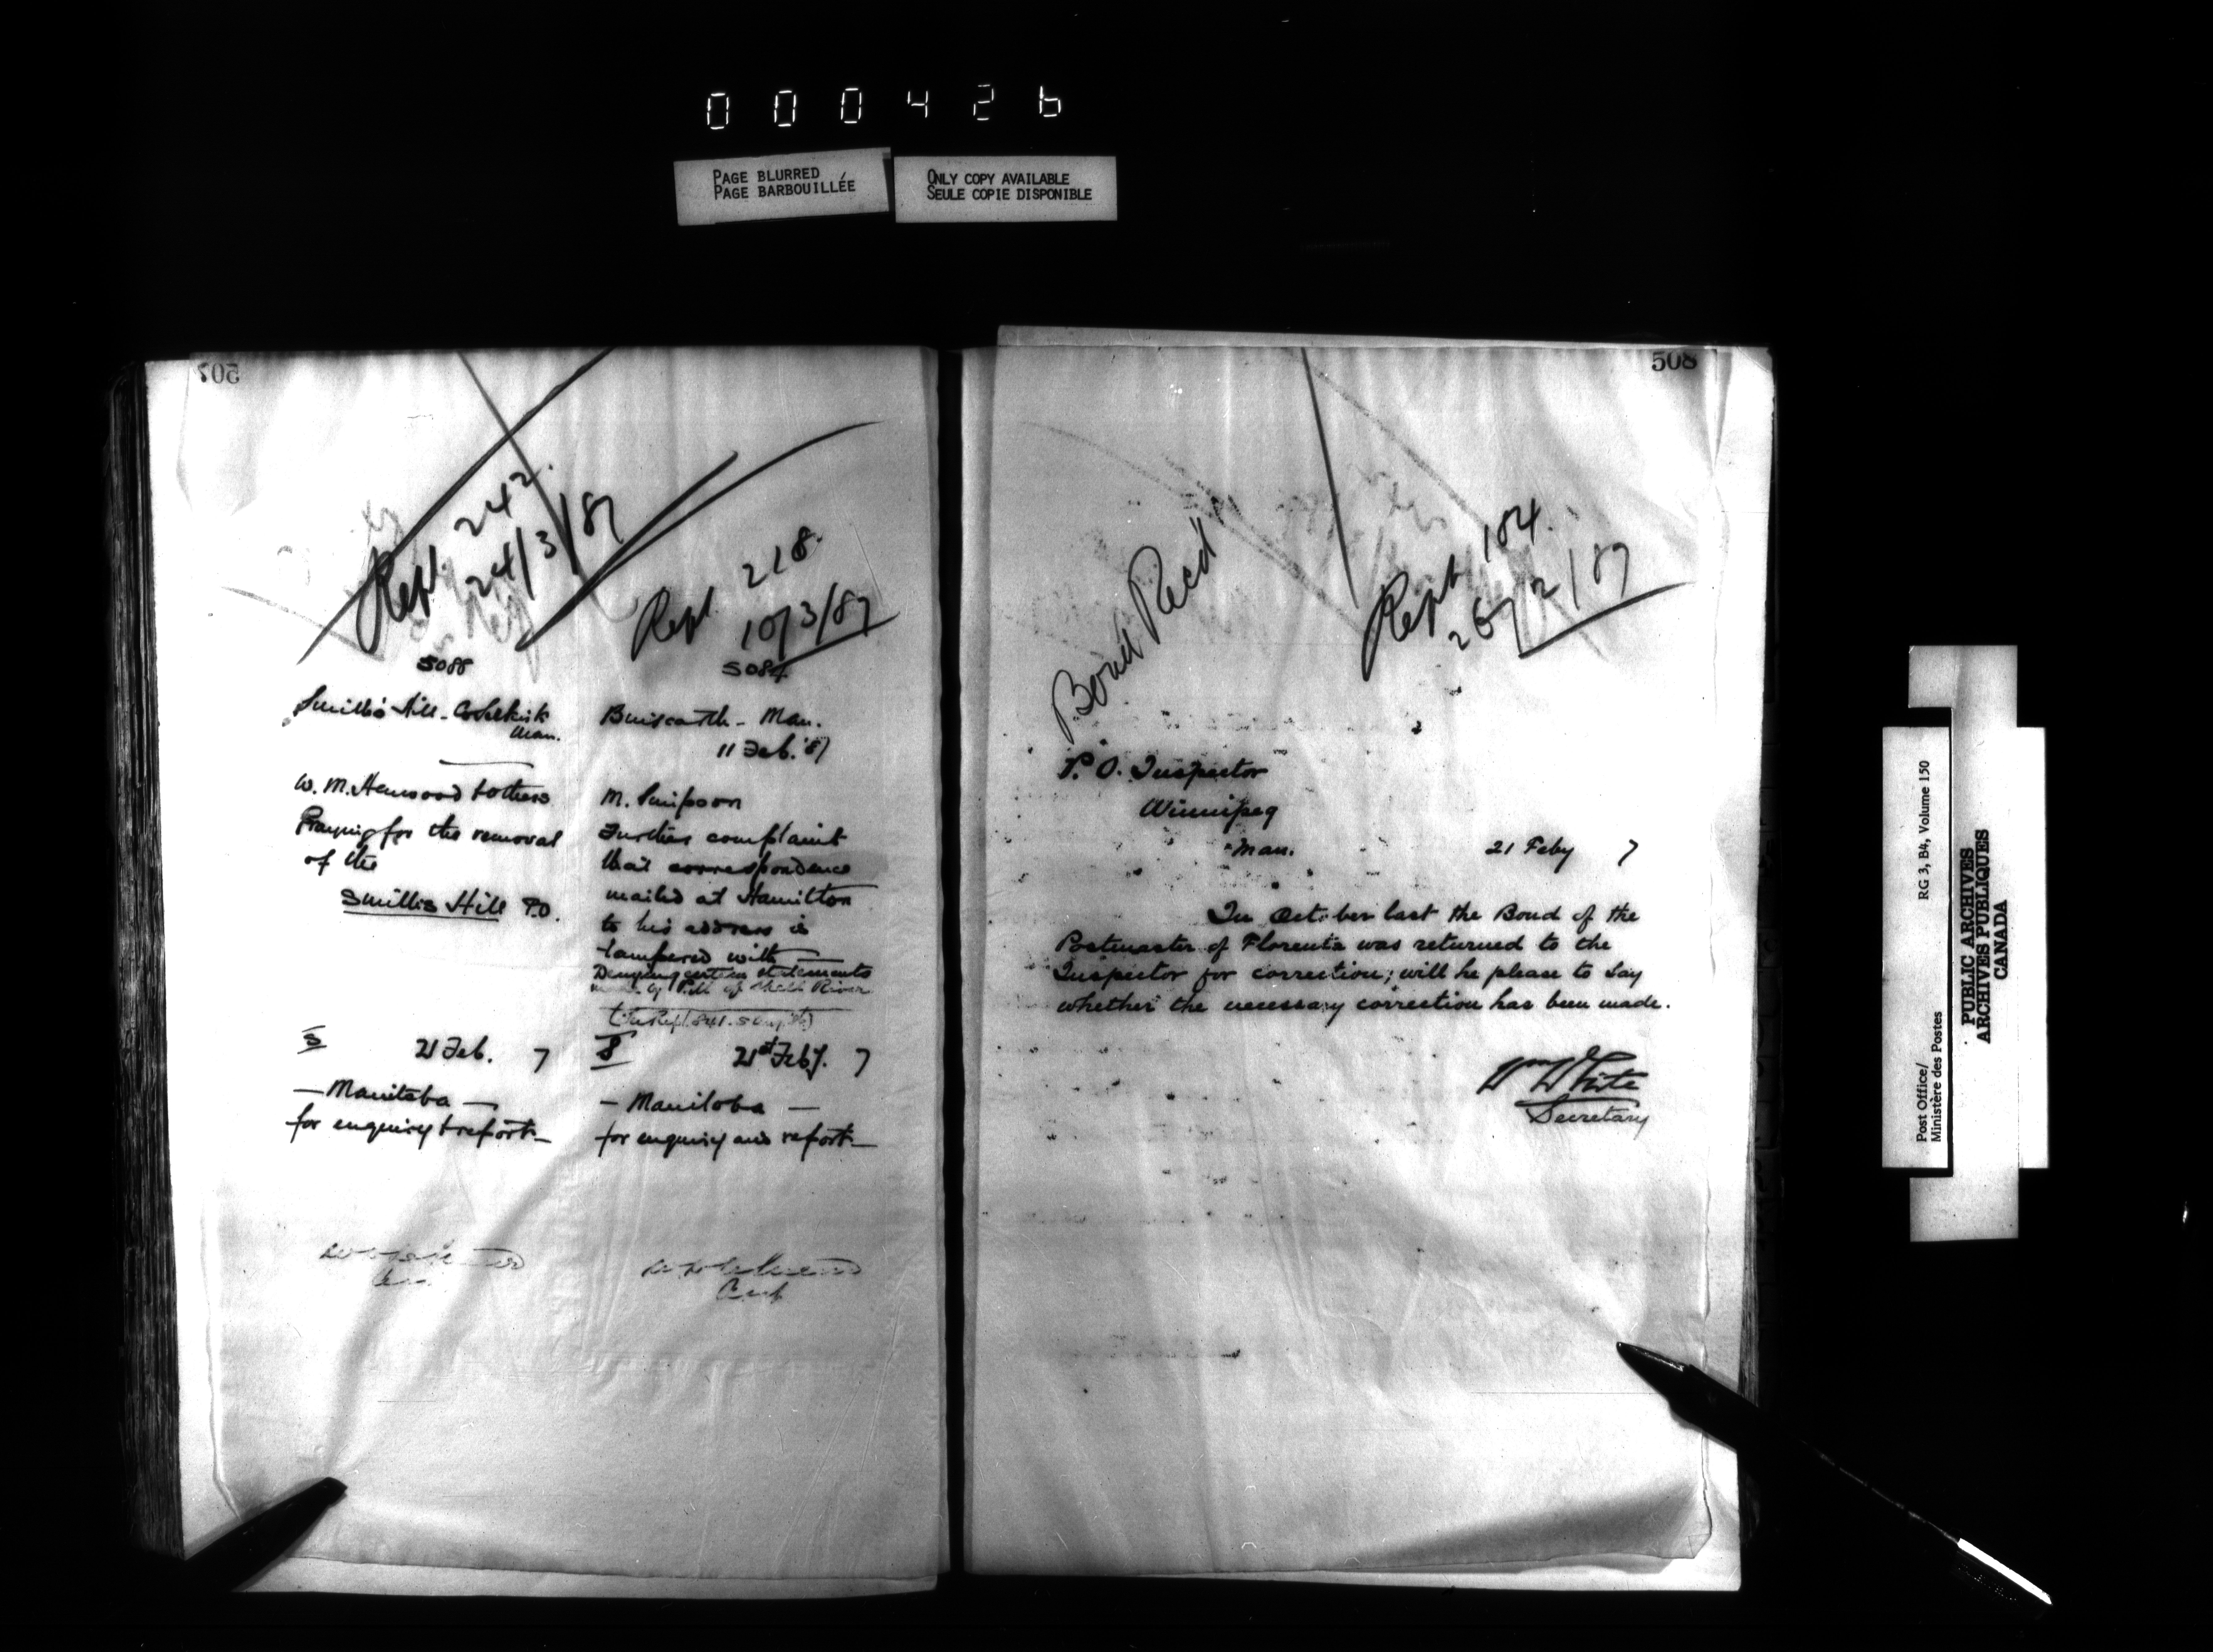 000426
PAGE BLURRED
PAGE BARBOUILLÉE
ONLY COPY AVAILABLE
SEULE COPIE DISPONIBLE
507
Rept. 242.
24/3/87
5088
Smillie's Hill - Co Selkirk
Man.
W. M. Henwood & others
Praying for the removal
of the
Smillis Hill P.O.
S
21 Feb. 7
— Manitoba —
for enquiry & report —
Rept. 218.
10/3/87
5084
Binscarth - Man.
11 Feb. '87
M. Simpson
Further complaint
that correspondence
mailed at Hamilton
to his address is
tampered with —
Denying certain statements
made by P.M. of Shell River
S
21st Feby. 7
— Manitoba —
for enquiry and report —
508
Bond Recd
Rept 184.
26/2/87
P. O. Inspector
Winnipeg
Man.
21 Feby 7
In October last the Bond of the
Postmaster of Florenta was returned to the
Inspector for correction; will he please to say
whether the necessary correction has been made.
Wm White
Secretary
Post Office/
Ministère des Postes
RG 3, B4, Volume 150
PUBLIC ARCHIVES
ARCHIVES PUBLIQUES
CANADA